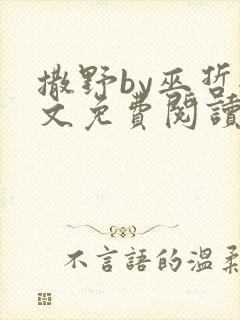 撒野by巫哲
文免費閱讀
不言語的溫柔